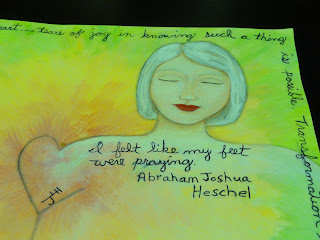 eart... tears of joy in knowing such a thing
is possible Transformation
I felt like my feet
were praying.
Abraham Joshua
Heschel
JH